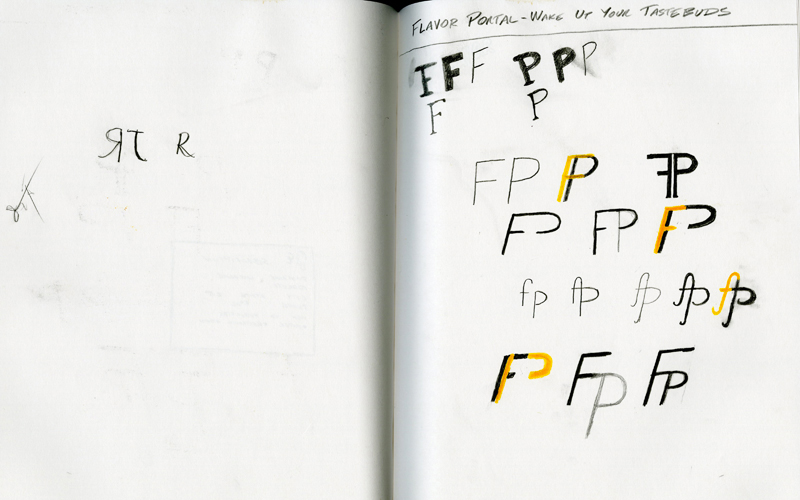 ЯT R
FLAVOR PORTAL - WAKE UP YOUR TASTEBUDS
F F F P P P
F P
FP FP FP
FP FP FP
fp fp fp fp fp
FP FP FP